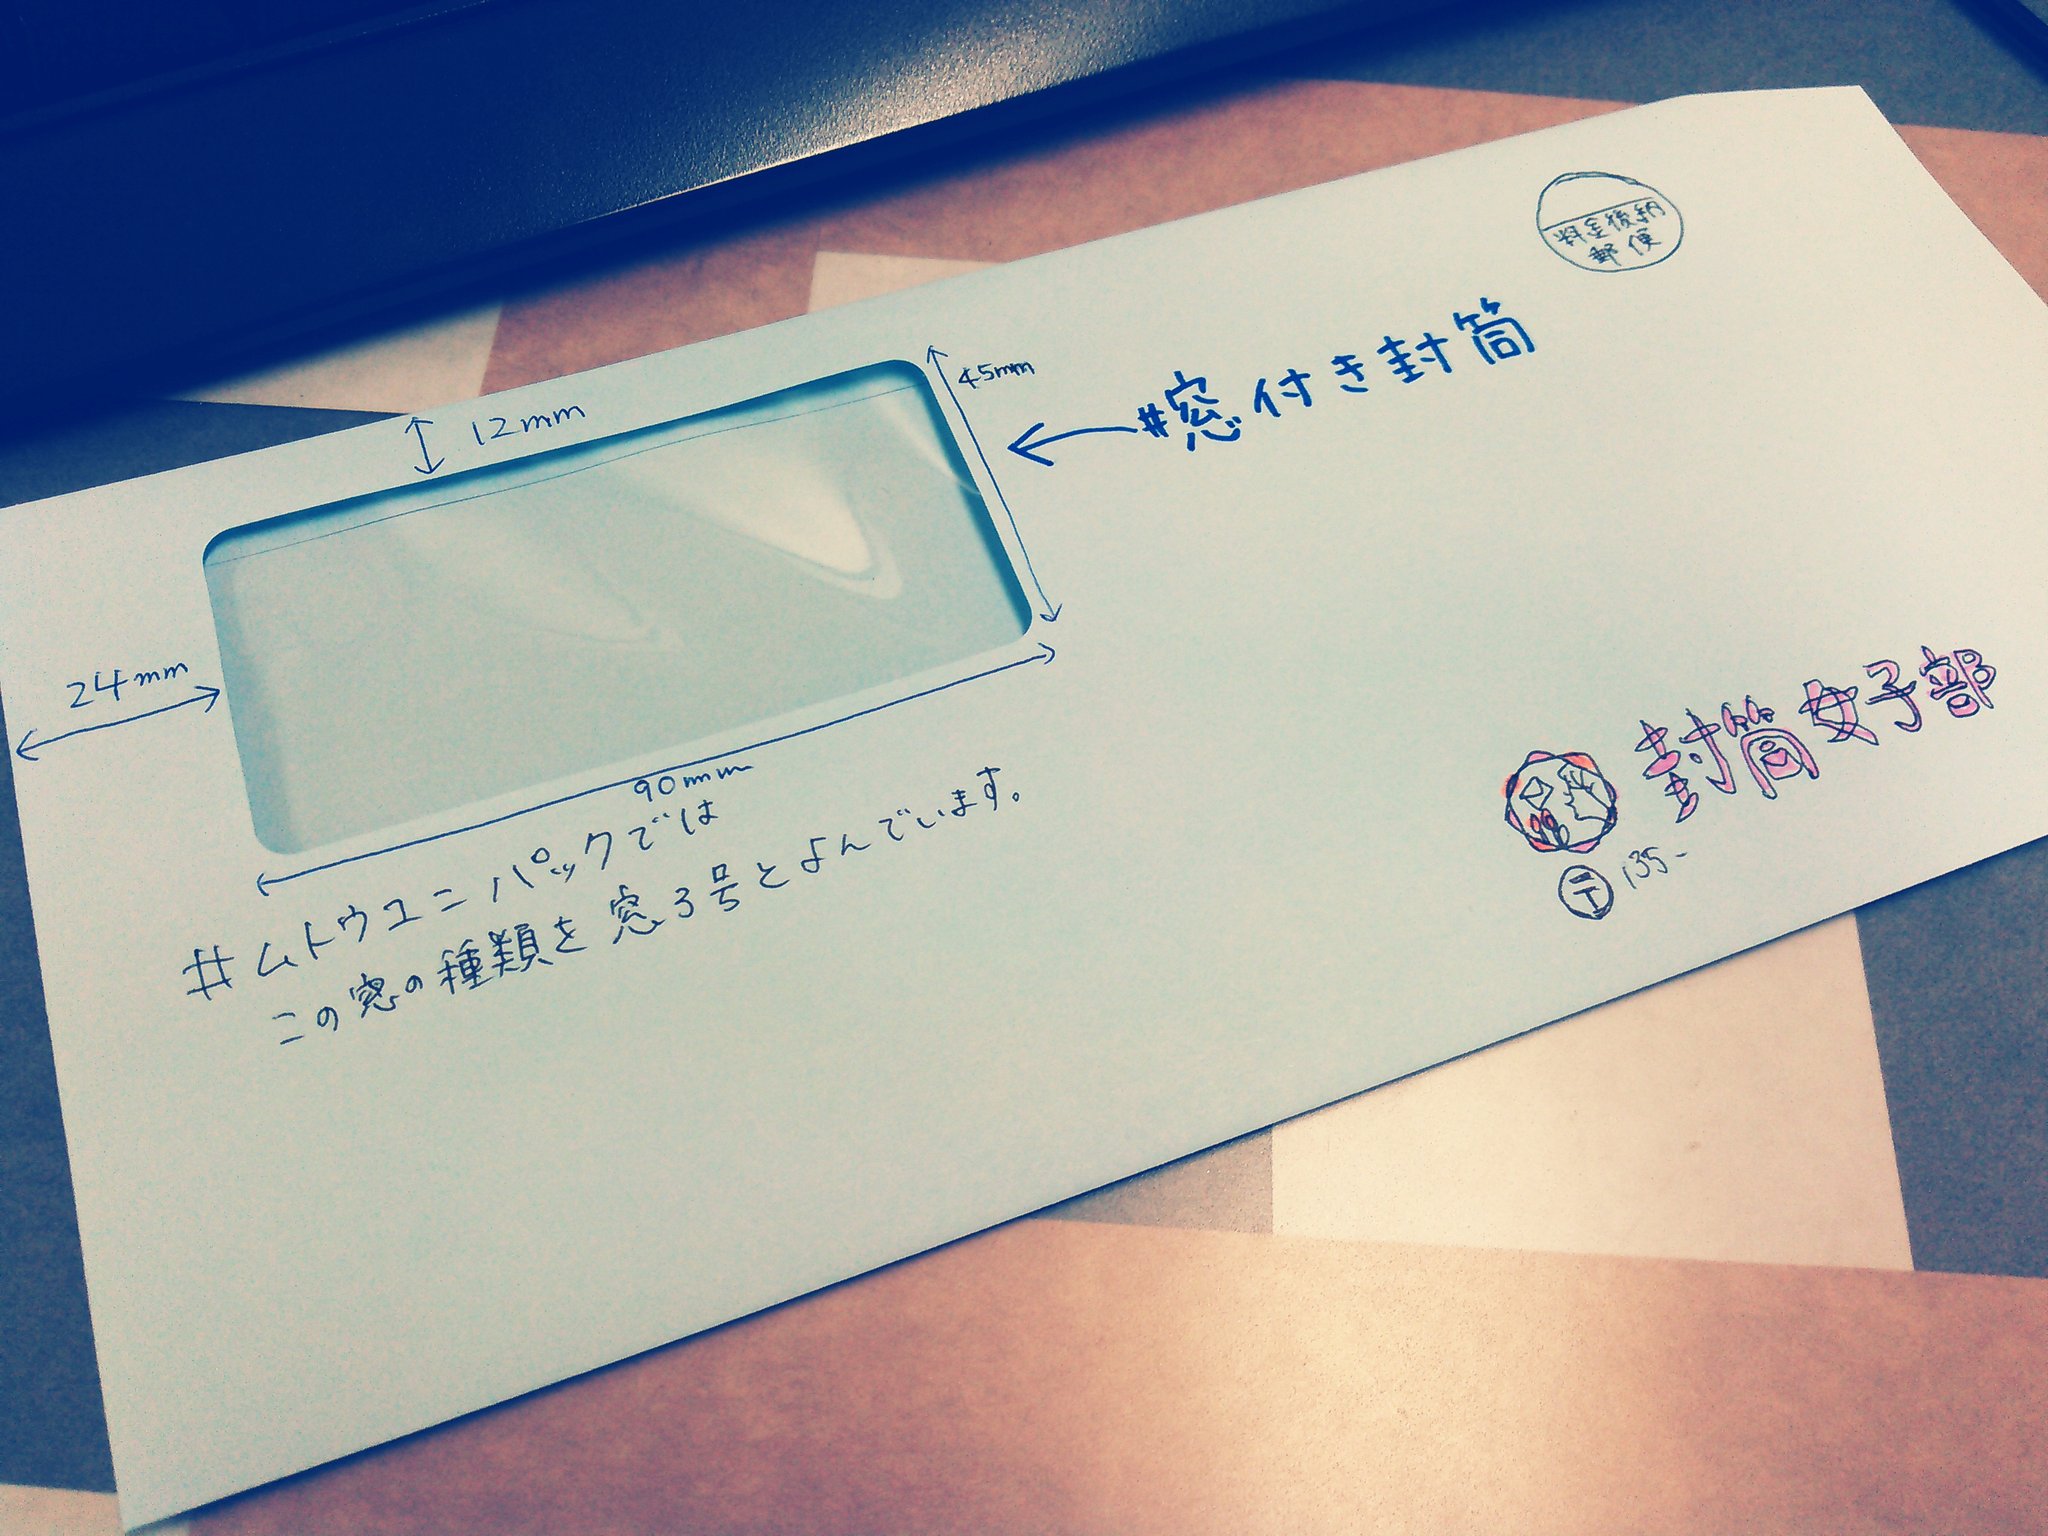 料金後納
郵便
45mm
#窓付き封筒
12mm
24mm
90mm
#ムトウユニパックでは
この窓の種類を窓3号とよんでいます。
封筒女子部
〒135-